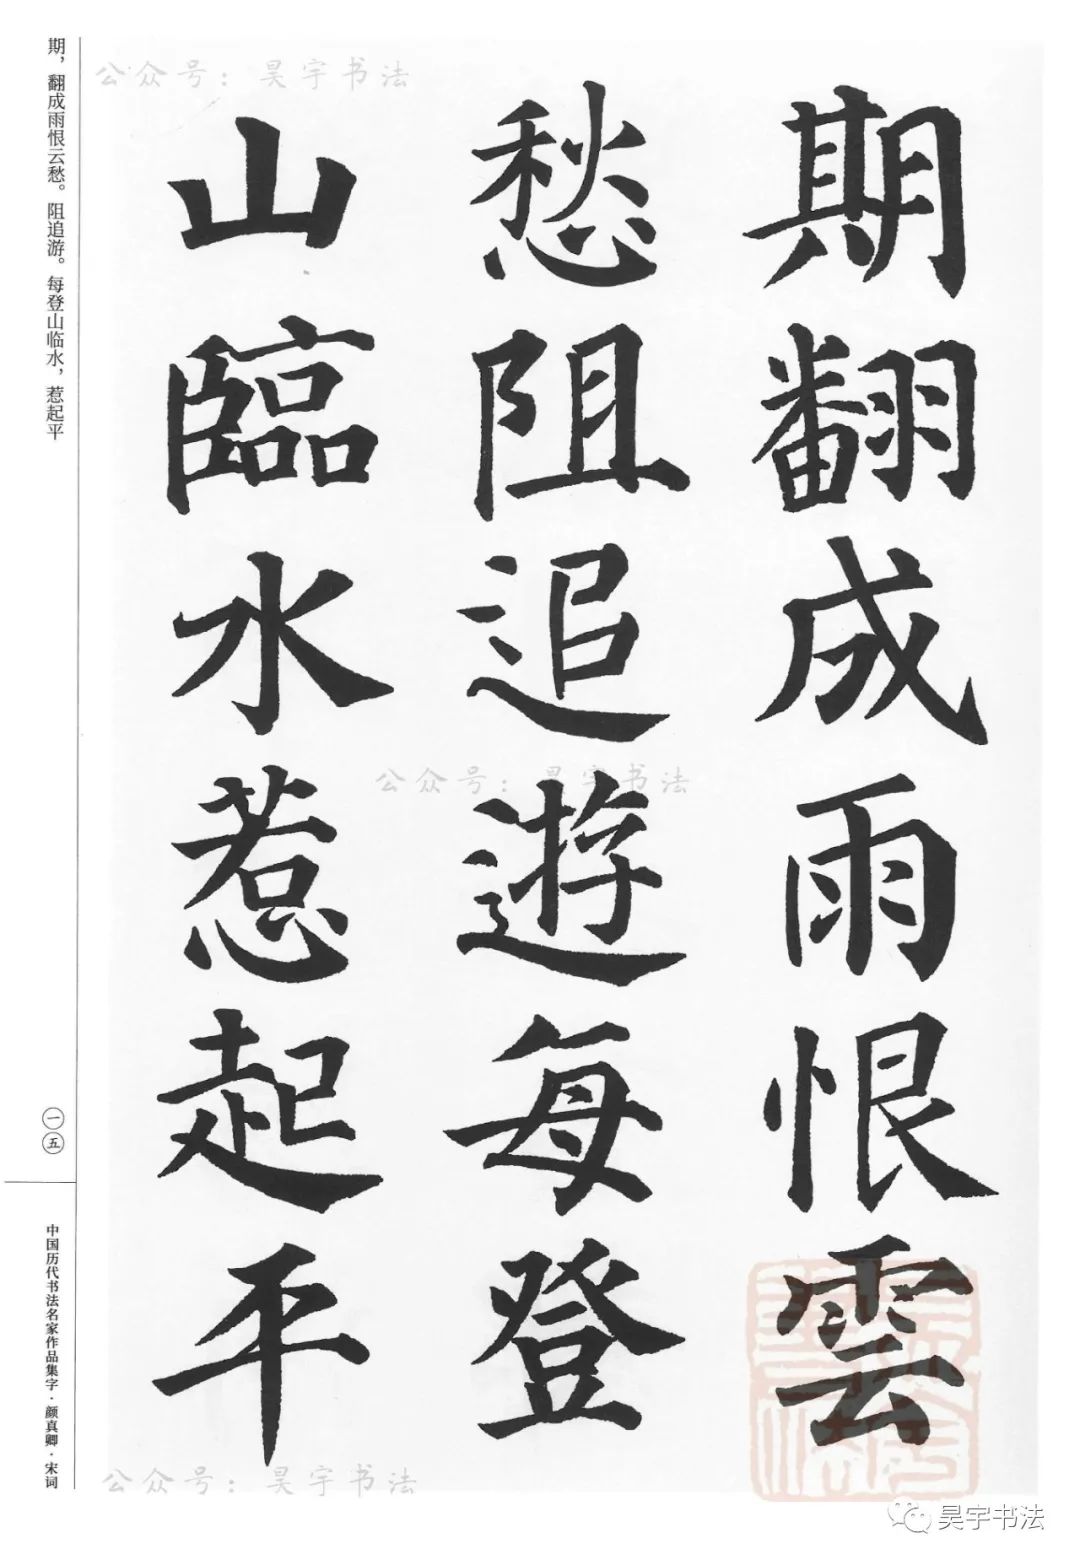 期翻成雨恨雲
愁阻追遊每登
山臨水惹起平
期，翻成雨恨云愁。阻追游。每登山临水，惹起平
一五
中国历代书法名家作品集字·颜真卿·宋词
公众号：昊宇书法
公众号：昊宇书法
公众号：昊宇书法
昊宇书法